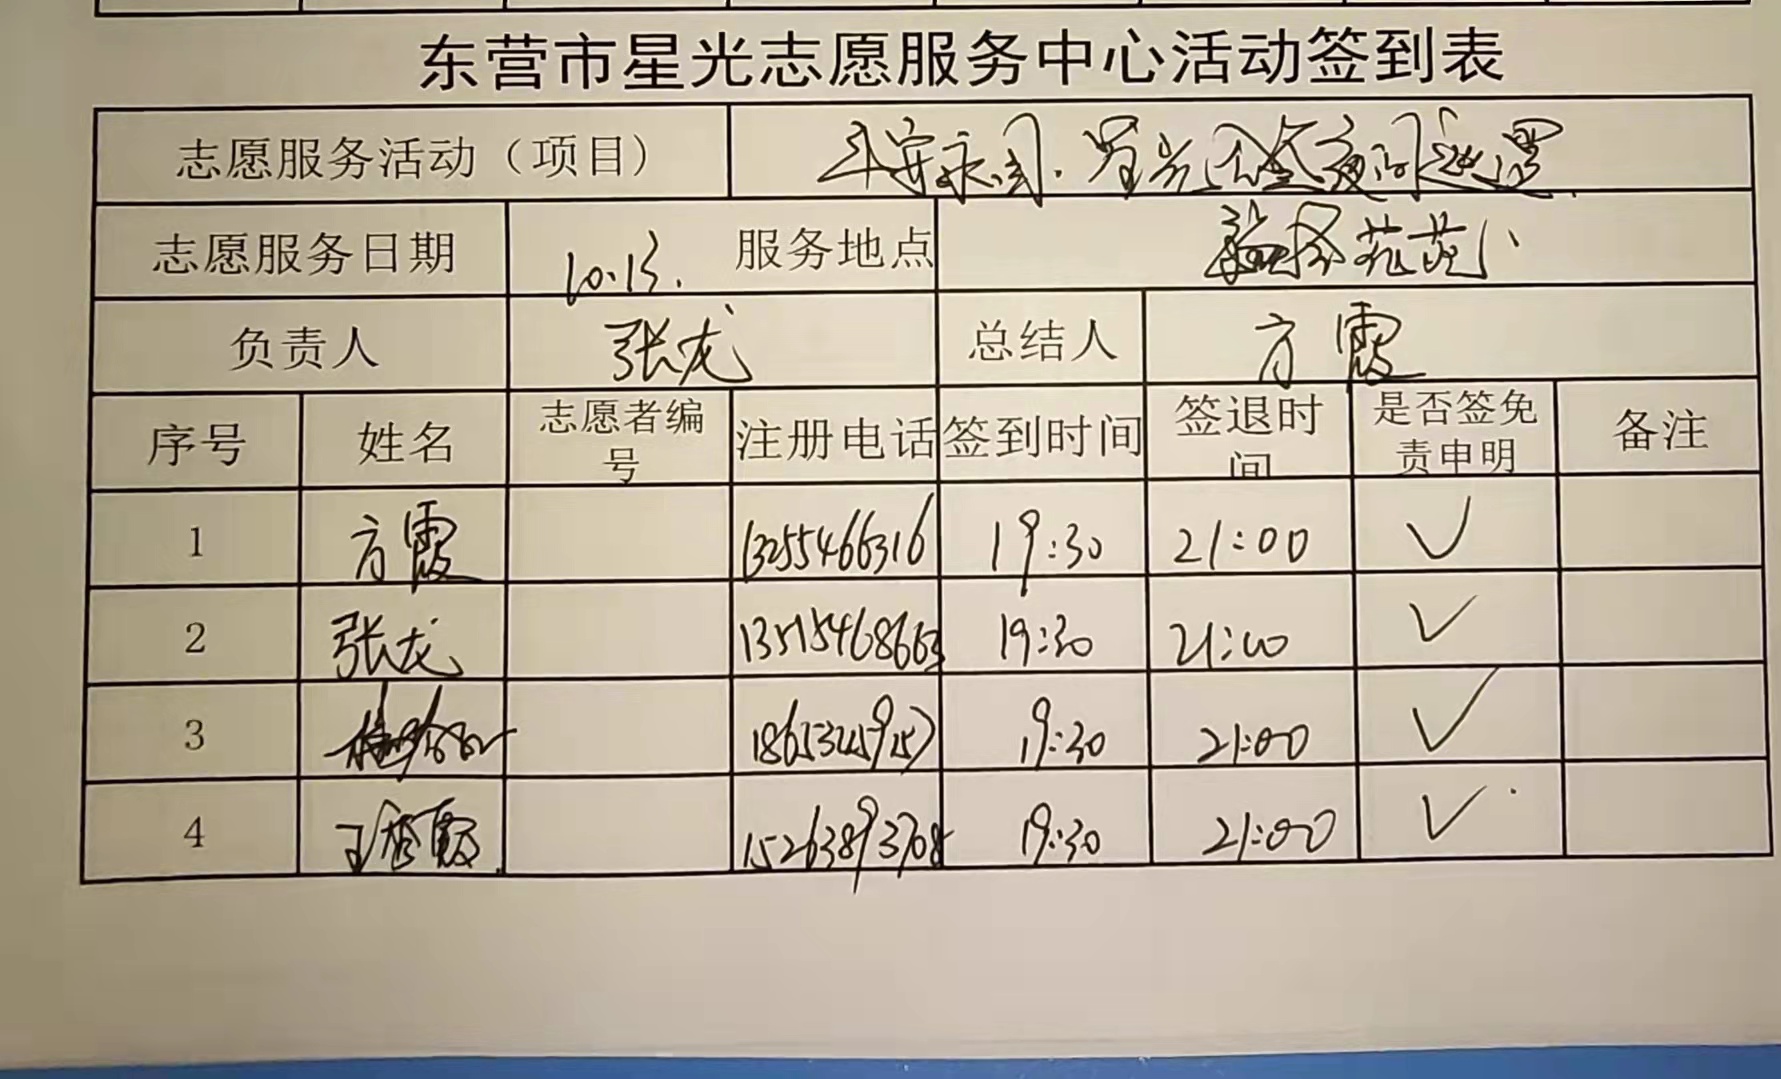 东营市星光志愿服务中心活动签到表
志愿服务活动（项目） 平安永同.星光不金夜间巡逻
志愿服务日期 10.13. 服务地点
负责人 张龙 总结人 方霞
序号 姓名 志愿者编号 注册电话 签到时间 签退时间 是否签免责申明 备注
1 方霞 13255466316 19:30 21:00 ✓
2 张龙 13515468663 19:30 21:00 ✓
3 19:30 21:00 ✓
4 15263893708 19:30 21:00 ✓